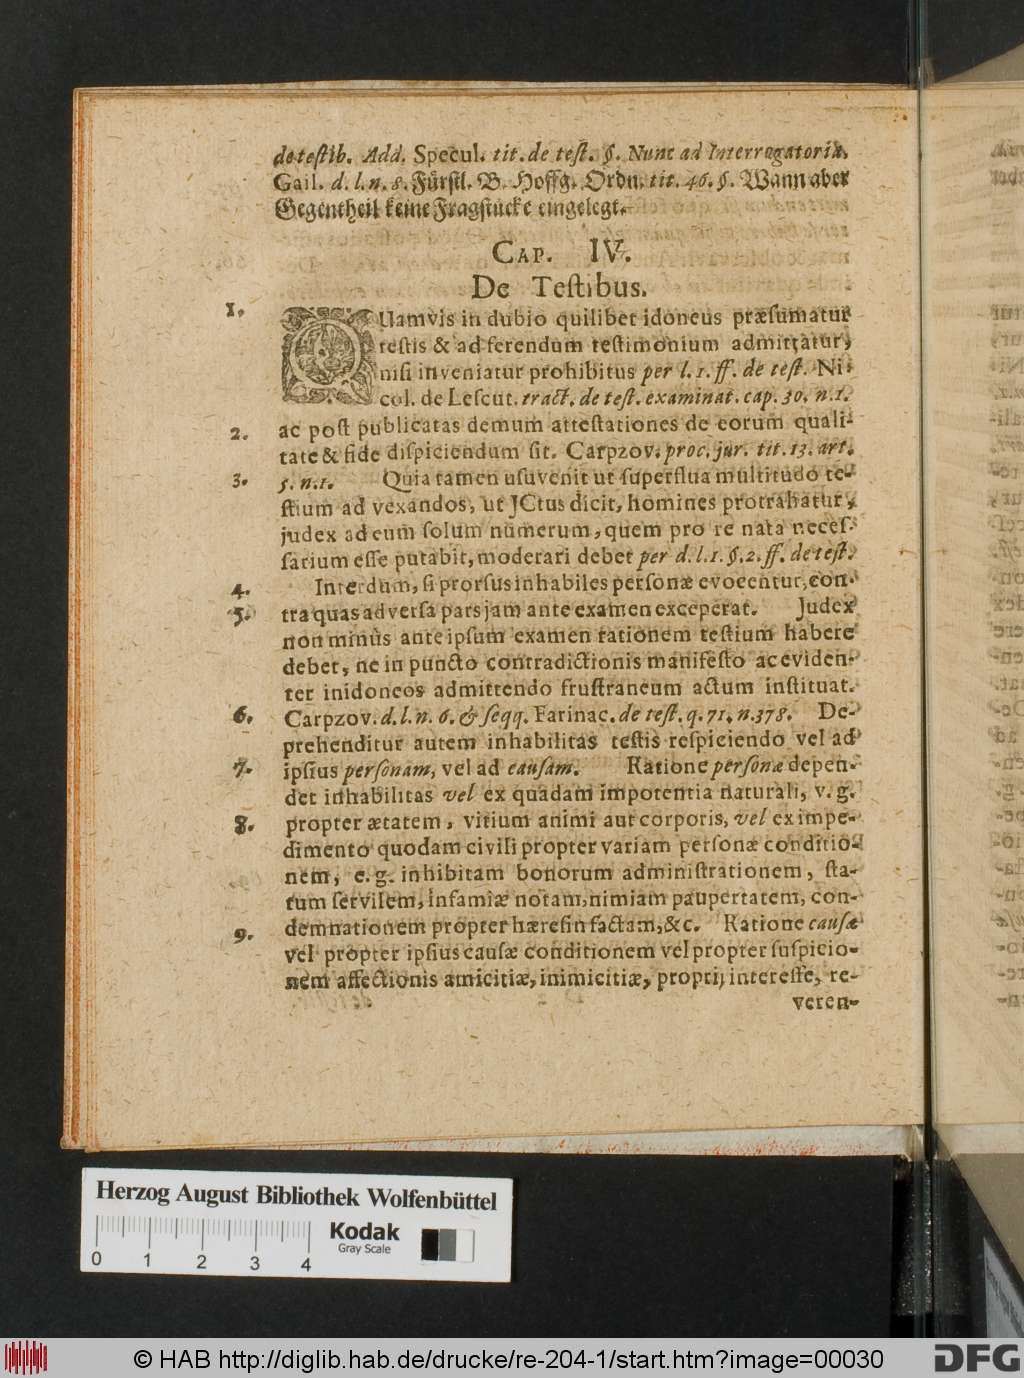 de testib. Add. Specul. tit. de test. §. Nunc ad Interrogatoria.
Gail. d. l. n. 8. Fürstl. B. Hoffg. Ordn. tit. 46. §. Wann aber
Gegentheil keine Fragstücke eingelegt.
CAP. IV.
De Testibus.
1. QUamvis in dubio quilibet idoneus præsumatur
testis & ad ferendum testimonium admittatur,
nisi inveniatur prohibitus per l. 1. ff. de test. Ni-
col. de Lescut. tract. de test. examinat. cap. 30. n. 1.
2. ac post publicatas demum attestationes de eorum quali-
tate & fide dispiciendum sit. Carpzov. proc. jur. tit. 13. art.
3. 5. n. 1. Quia tamen usuvenit ut superflua multitudo te-
stium ad vexandos, ut JCtus dicit, homines protrahatur,
judex ad eum solum numerum, quem pro re nata neces-
sarium esse putabit, moderari debet per d. l. 1. §. 2. ff. de test.
4. Interdum, si prorsus inhabiles personæ evocentur, con-
5. tra quas adversa pars jam ante examen exceperat. Judex
non minùs ante ipsum examen rationem testium habere
debet, ne in puncto contradictionis manifesto ac eviden-
ter inidoneos admittendo frustraneum actum instituat.
6. Carpzov. d. l. n. 6. & seqq. Farinac. de test. q. 71. n. 378. De-
prehenditur autem inhabilitas testis respiciendo vel ad
7. ipsius personam, vel ad causam. Ratione personæ depen-
det inhabilitas vel ex quadam impotentia naturali, v. g.
8. propter ætatem, vitium animi aut corporis, vel ex impe-
dimento quodam civili propter variam personæ conditio-
nem, e. g. inhibitam bonorum administrationem, sta-
tum servilem, infamiæ notam, nimiam paupertatem, con-
9. demnationem propter hæresin factam, &c. Ratione causæ
vel propter ipsius causæ conditionem vel propter suspicio-
nem affectionis amicitiæ, inimicitiæ, proprij interesse, re-
veren-
Herzog August Bibliothek Wolfenbüttel
0 1 2 3 4
Kodak
Gray Scale
© HAB http://diglib.hab.de/drucke/re-204-1/start.htm?image=00030
DFG